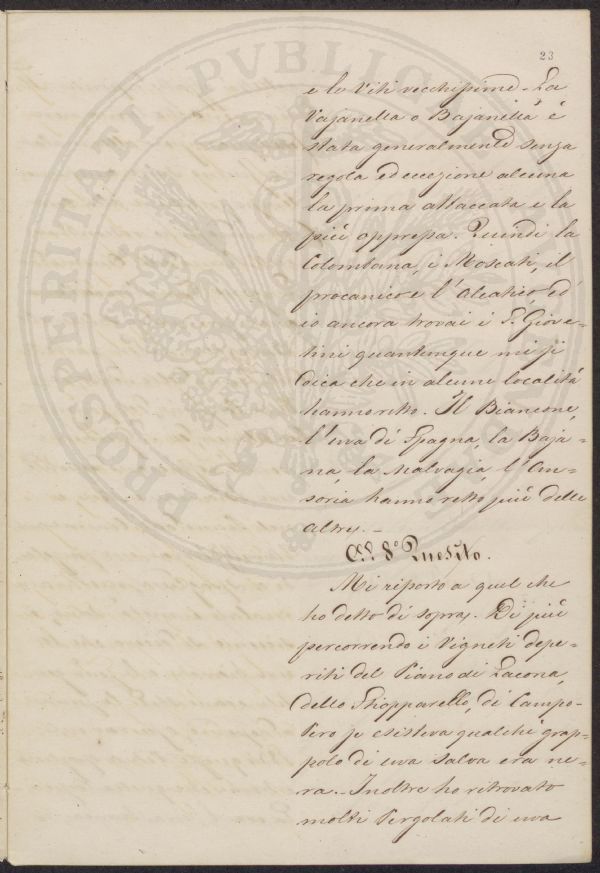 23
e le Viti vecchissime. La
Vajanella o Bajanella è
stata generalmente senza
regola ed eccezione alcuna
la prima attaccata e la
più oppressa. Quindi la
Colombana, i Moscati, il
procanico e l'Aleatico, ed
io ancora trovai i S. Giove-
tini quantunque mi si
dica che in alcune località
hanno retto. Il Biancone,
l'uva di Spagna, la Baja-
na, la Malvagia, l'An-
soria hanno retto più delle
altre. -
All 8° Quesito.
Mi riporto a quel che
ho detto di sopra. Di più
percorrendo i Vigneti depe-
riti del Piano di Lacona,
dello Stopparello, di Campo-
Pero se esisteva qualche grap-
polo di uva salva era ne-
ra. Inoltre ho ritrovato
molti Pergolati di uva
PROSPERITATI PVBLICAE